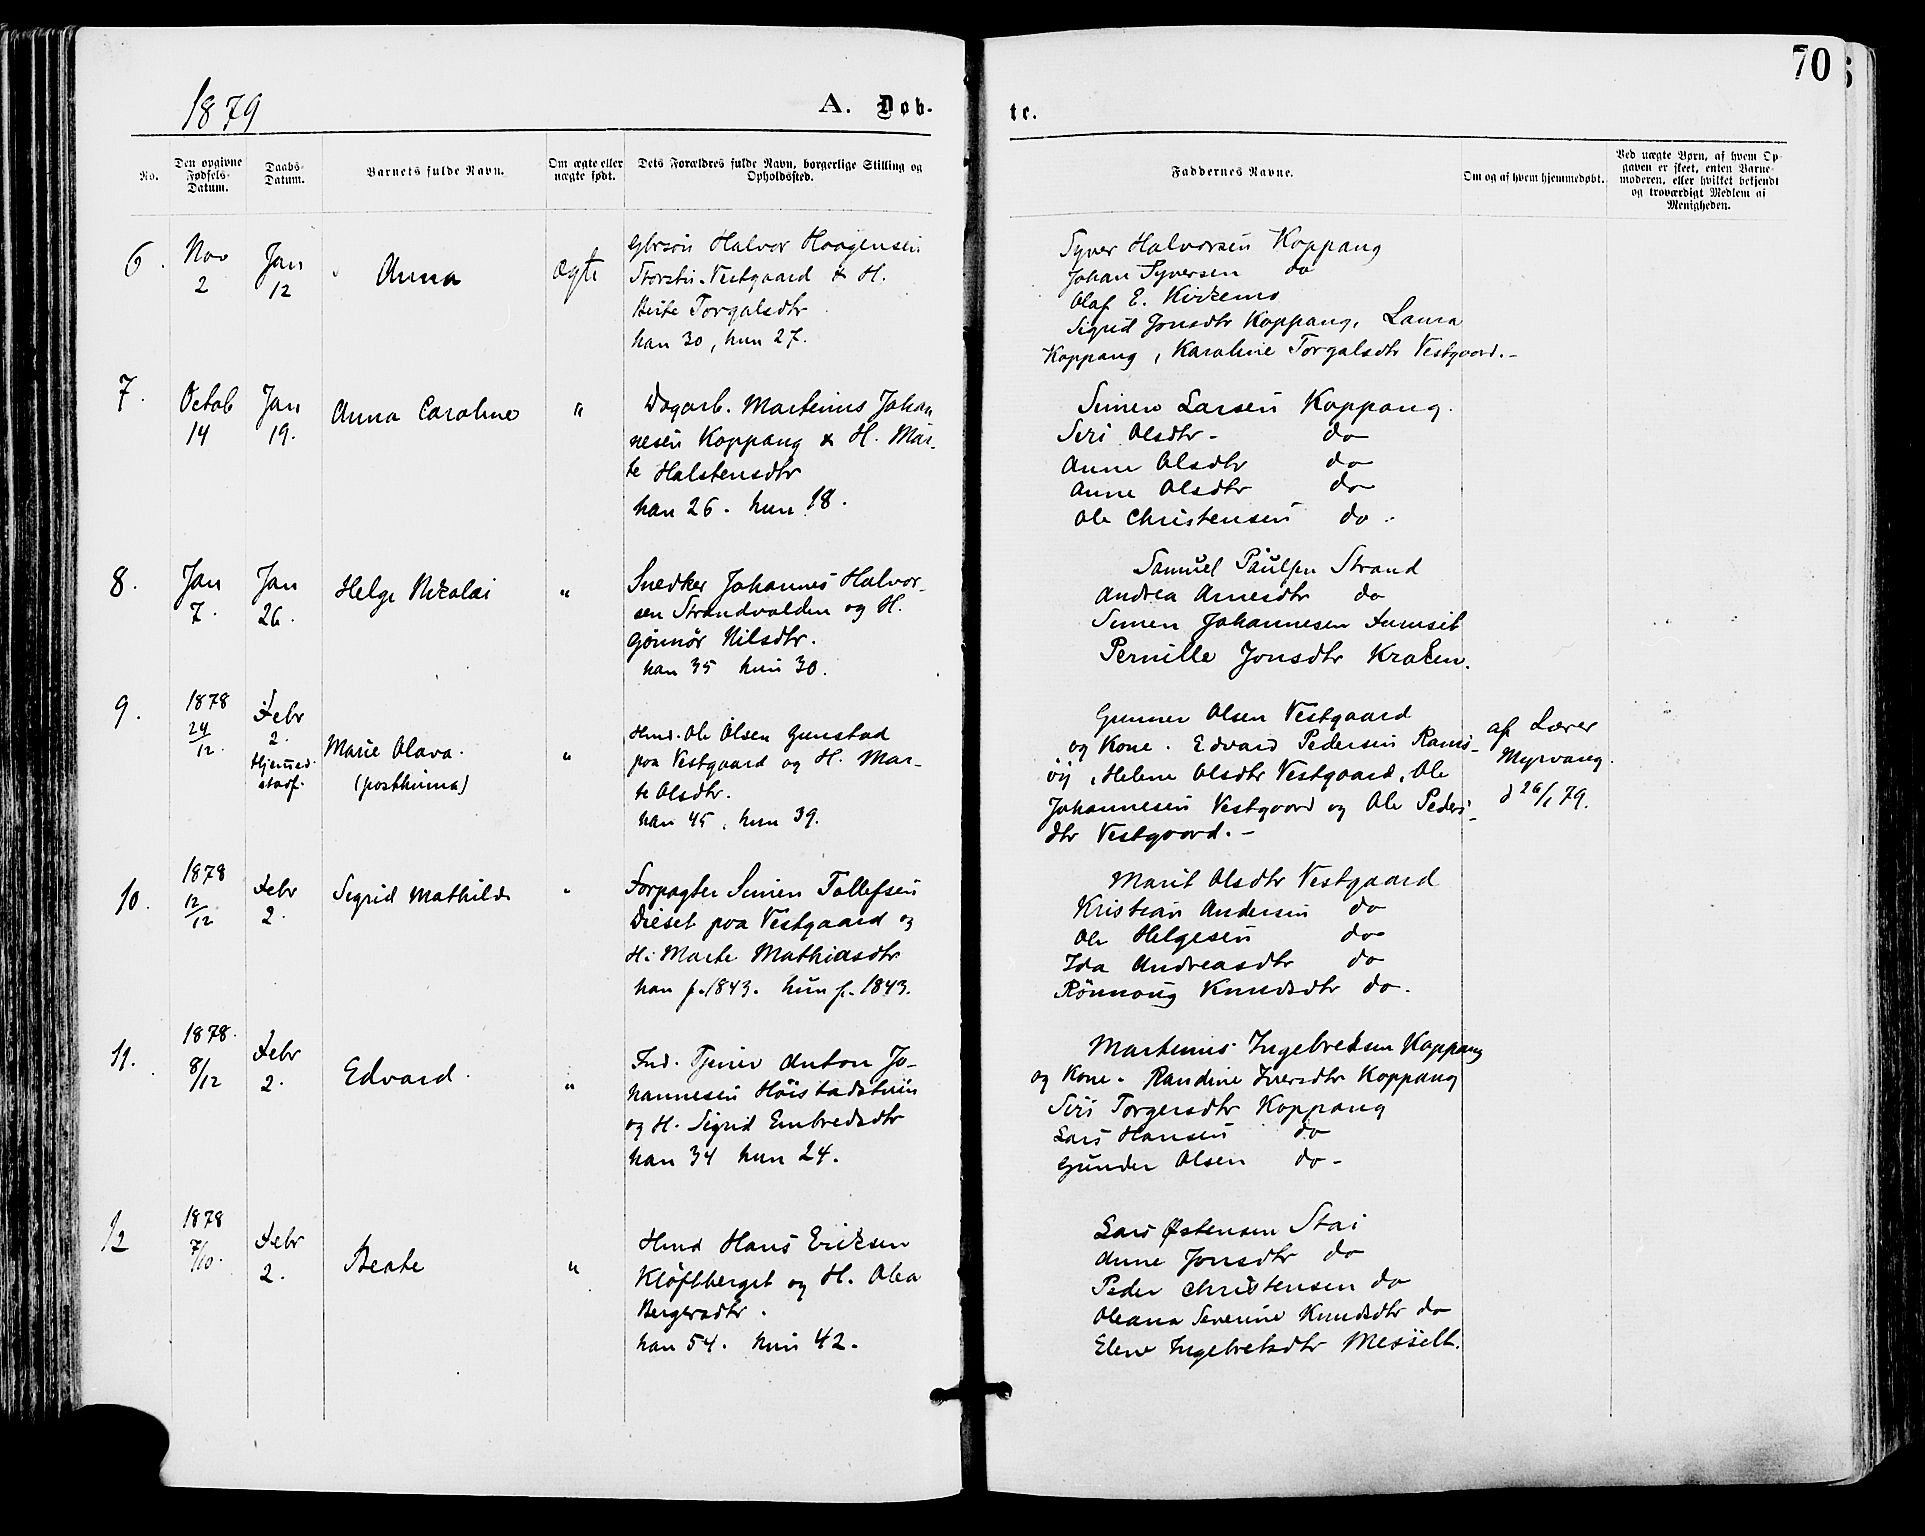 1879
A. Døb-
te.
70
No.
Den opgivne Fødsels-Datum.
Daabs-Datum.
Barnets fulde Navn.
Om ægte eller uægte født.
Dets Forældres fulde Navn, borgerlige Stilling og Opholdssted.
Faddernes Navne.
Om og af hvem hjemmedøbt.
Ved uægte Børn, af hvem Opgaven er skeet, enten Barnemoderen, eller hvilket bekjendt og troværdigt Medlem af Menigheden.
6. Nov 2 Jan 12 Anna ægte
Gbrsön Halvor Haagensen
Storstu-Vestgaard & H.
Berte Torgalsdtr
han 30, hun 27.
Syver Halvorsen Koppang
Johan Syversen do
Olaf E. Kirkemo
Sigrid Jonsdtr Koppang, Laura
Koppang, Karoline Torgalsdtr Vestgaard.-
7. Octob 14 Jan 19. Anna Caroline "
Dagarb. Martinus Johan
nesen Koppang & H. Mar-
te Halstensdtr
han 26. hun 18.
Simen Larsen Koppang.
Siri Olsdtr- do
Anne Olsdtr do
Anne Olsdtr do
Ole Christensen do.
8. Jan 7. Jan 26. Helge Nikolai "
Snedker Johannes Halvor-
sen Strandvolden og H.
Gönnör Nilsdtr.
han 35 hun 30.
Samuel Paulsen Strand
Andrea Arnesdtr do
Simen Johannesen Furuset
Pernille Jonsdtr Kroken.
9. 1878 24/12. Febr 2. Hjemmed. stadf. Marie Olava. (posthuma) "
Hmd. Ole Olsen Gunstad
paa Vestgaard og H. Mar-
te Olsdtr.
han 45, hun 39.
Gunner Olsen Vestgaard
og Kone. Edvard Pedersen Rams-
öi, Helene Olsdtr Vestgaard, Ole
Johannesen Vestgaard og Ole Peders-
dtr Vestgaard.-
af Lærer
Myrvang.
d 26/1 79.
10. 1878 12/12 Febr 2. Sigrid Mathilde "
Forpagter Simen Tollefsen
Diset paa Vestgaard og
H. Marte Mathiasdtr
han f. 1843. hun f. 1843.
Marit Olsdtr Vestgaard
Kristian Andersen do
Ole Helgesen do
Ida Andreasdtr do
Rönnoug Knudsdtr do.
11. 1878. 8/12 Febr 2. Edvard. "
Ind. Tjener Anton Jo-
hannesen Höistadstuen
og H. Sigrid Embredsdtr
han 34 hun 24.
Martinus Ingebretsen Koppang
og Kone. Randine Iversdtr Koppang
Siri Torgersdtr Koppang
Lars Hansen do
Gunder Olsen do-
12 1878 7/10. Febr 2. Beate "
Hmd Hans Eriksen
Klöftberget og H. Olea
Bergersdtr.
han 54. hun 42.
Lars Østensen Stai
Anne Jonsdtr do
Peder Christensen do
Oleana Severine Knudsdtr do
Elene Ingebretsdtr Messelt.